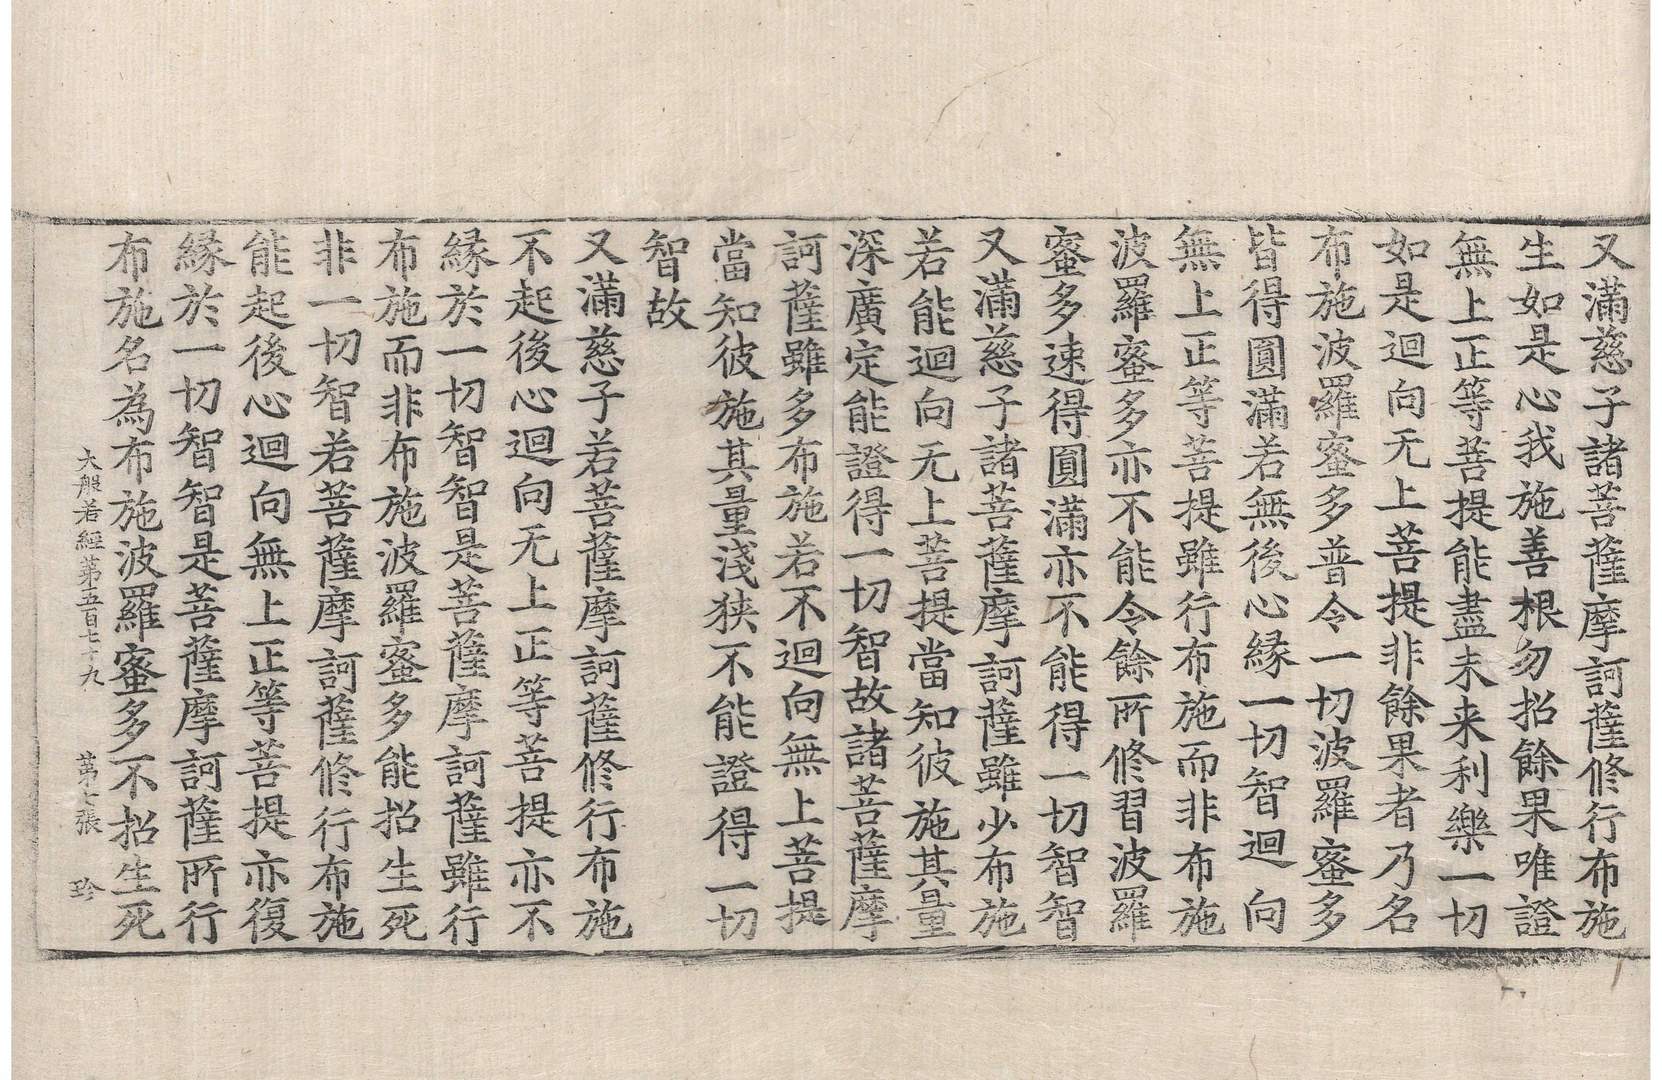 又滿慈子諸菩薩摩訶薩修行布施
生如是心我施善根勿招餘果唯證
無上正等菩提能盡未来利樂一切
如是迴向无上菩提非餘果者乃名
布施波羅蜜多普令一切波羅蜜多
皆得圓滿若無後心緣一切智迴向
無上正等菩提雖行布施而非布施
波羅蜜多亦不能令餘所修習波羅
蜜多速得圓滿亦不能得一切智智
又滿慈子諸菩薩摩訶薩雖少布施
若能迴向无上菩提當知彼施其量
深廣定能證得一切智故諸菩薩摩
訶薩雖多布施若不迴向無上菩提
當知彼施其量淺狹不能證得一切
智故
又滿慈子若菩薩摩訶薩修行布施
不起後心迴向无上正等菩提亦不
緣於一切智智是菩薩摩訶薩雖行
布施而非布施波羅蜜多能招生死
非一切智若菩薩摩訶薩修行布施
能起後心迴向無上正等菩提亦復
緣於一切智智是菩薩摩訶薩所行
布施名為布施波羅蜜多不招生死
大般若經第五百七十九 第七張 珍